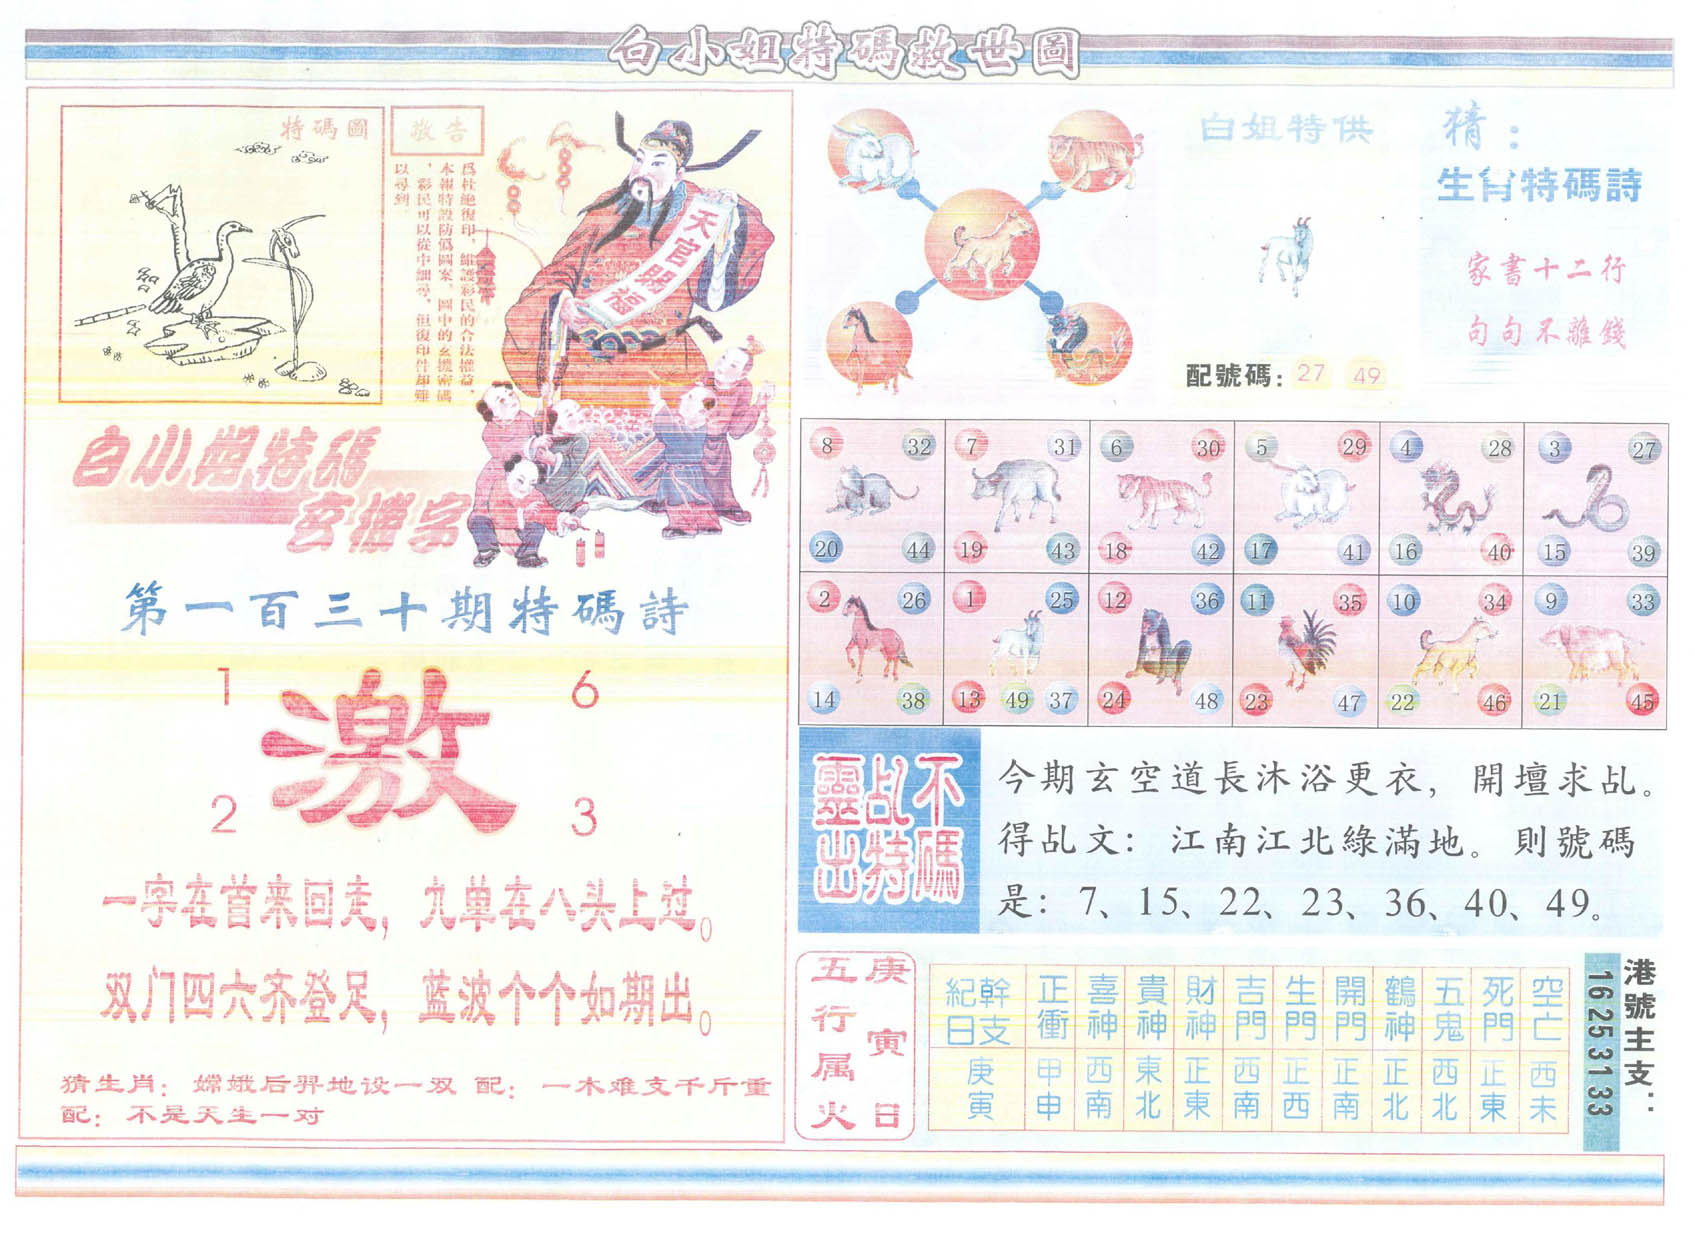 白小姐特碼救世圖
特碼圖
敬告
爲杜絶復印，維護彩民的合法權益，
本報特設防僞圖案。圖中的玄機密碼
，彩民可以從中細尋，但復印件却難
以尋到。
天官賜福
白小姐特碼
玄機字
第一百三十期特碼詩
1 6
激
2 3
一字在首来回走，九单在八头上过。
双门四六齐登足，蓝波个个如期出。
猜生肖：嫦娥后羿地设一双 配：一木难支千斤重
配：不是天生一对
白姐特供
配號碼：27 49
猜：
生肖特碼詩
家書十二行
句句不離錢
8 32 7 31 6 30 5 29 4 28 3 27
20 44 19 43 18 42 17 41 16 40 15 39
2 26 1 25 12 36 11 35 10 34 9 33
14 38 13 49 37 24 48 23 47 22 46 21 45
不
乩
靈
碼
特
出
今期玄空道長沐浴更衣，開壇求乩。
得乩文：江南江北綠滿地。則號碼
是：7、15、22、23、36、40、49。
庚寅日
五行属火
幹支
紀日 正衝 喜神 貴神 財神 吉門 生門 開門 鶴神 五鬼 死門 空亡
庚寅 甲申 西南 東北 正東 西南 正西 正南 正北 西北 正東 西未
港號主支：
16 25 31 33